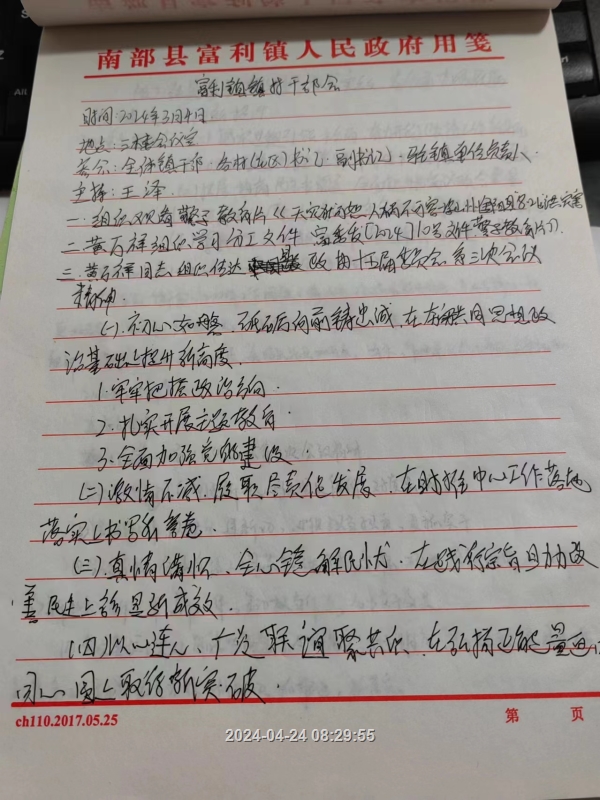 南部县富利镇人民政府用笺
富利镇镇村干部会
时间:2024年3月4日
地点:三楼会议室
参会:全体镇干部、各村(社区)书记、副书记、驻镇单位负责人
主持:王泽
一、组织观看警示教育片《天灾
二、黄万祥组织学习分工文件 富委发[2024]10号 警示教育片》
三、黄万祥同志组织传达 政协十五届委员会第三次会议
精神
(一)、初心如磐、砥砺向前铸忠诚,在夯实共同思想政
治基础上提升新高度。
1.牢牢把握政治方向.
2.扎实开展主题教育.
3.全面加强党的建设.
(二)激情不减、履职尽责促发展,在助推中心工作落地
落实上书写新答卷.
(三)、真情满怀、全心全意解民忧、在践行宗旨 助力改
善民生上彰显新成效.
(四)以心连心、广泛联谊聚共识,在弘扬正能量画
同心圆上取得新突破.
ch110.2017.05.25
第 页
2024-04-24 08:29:55